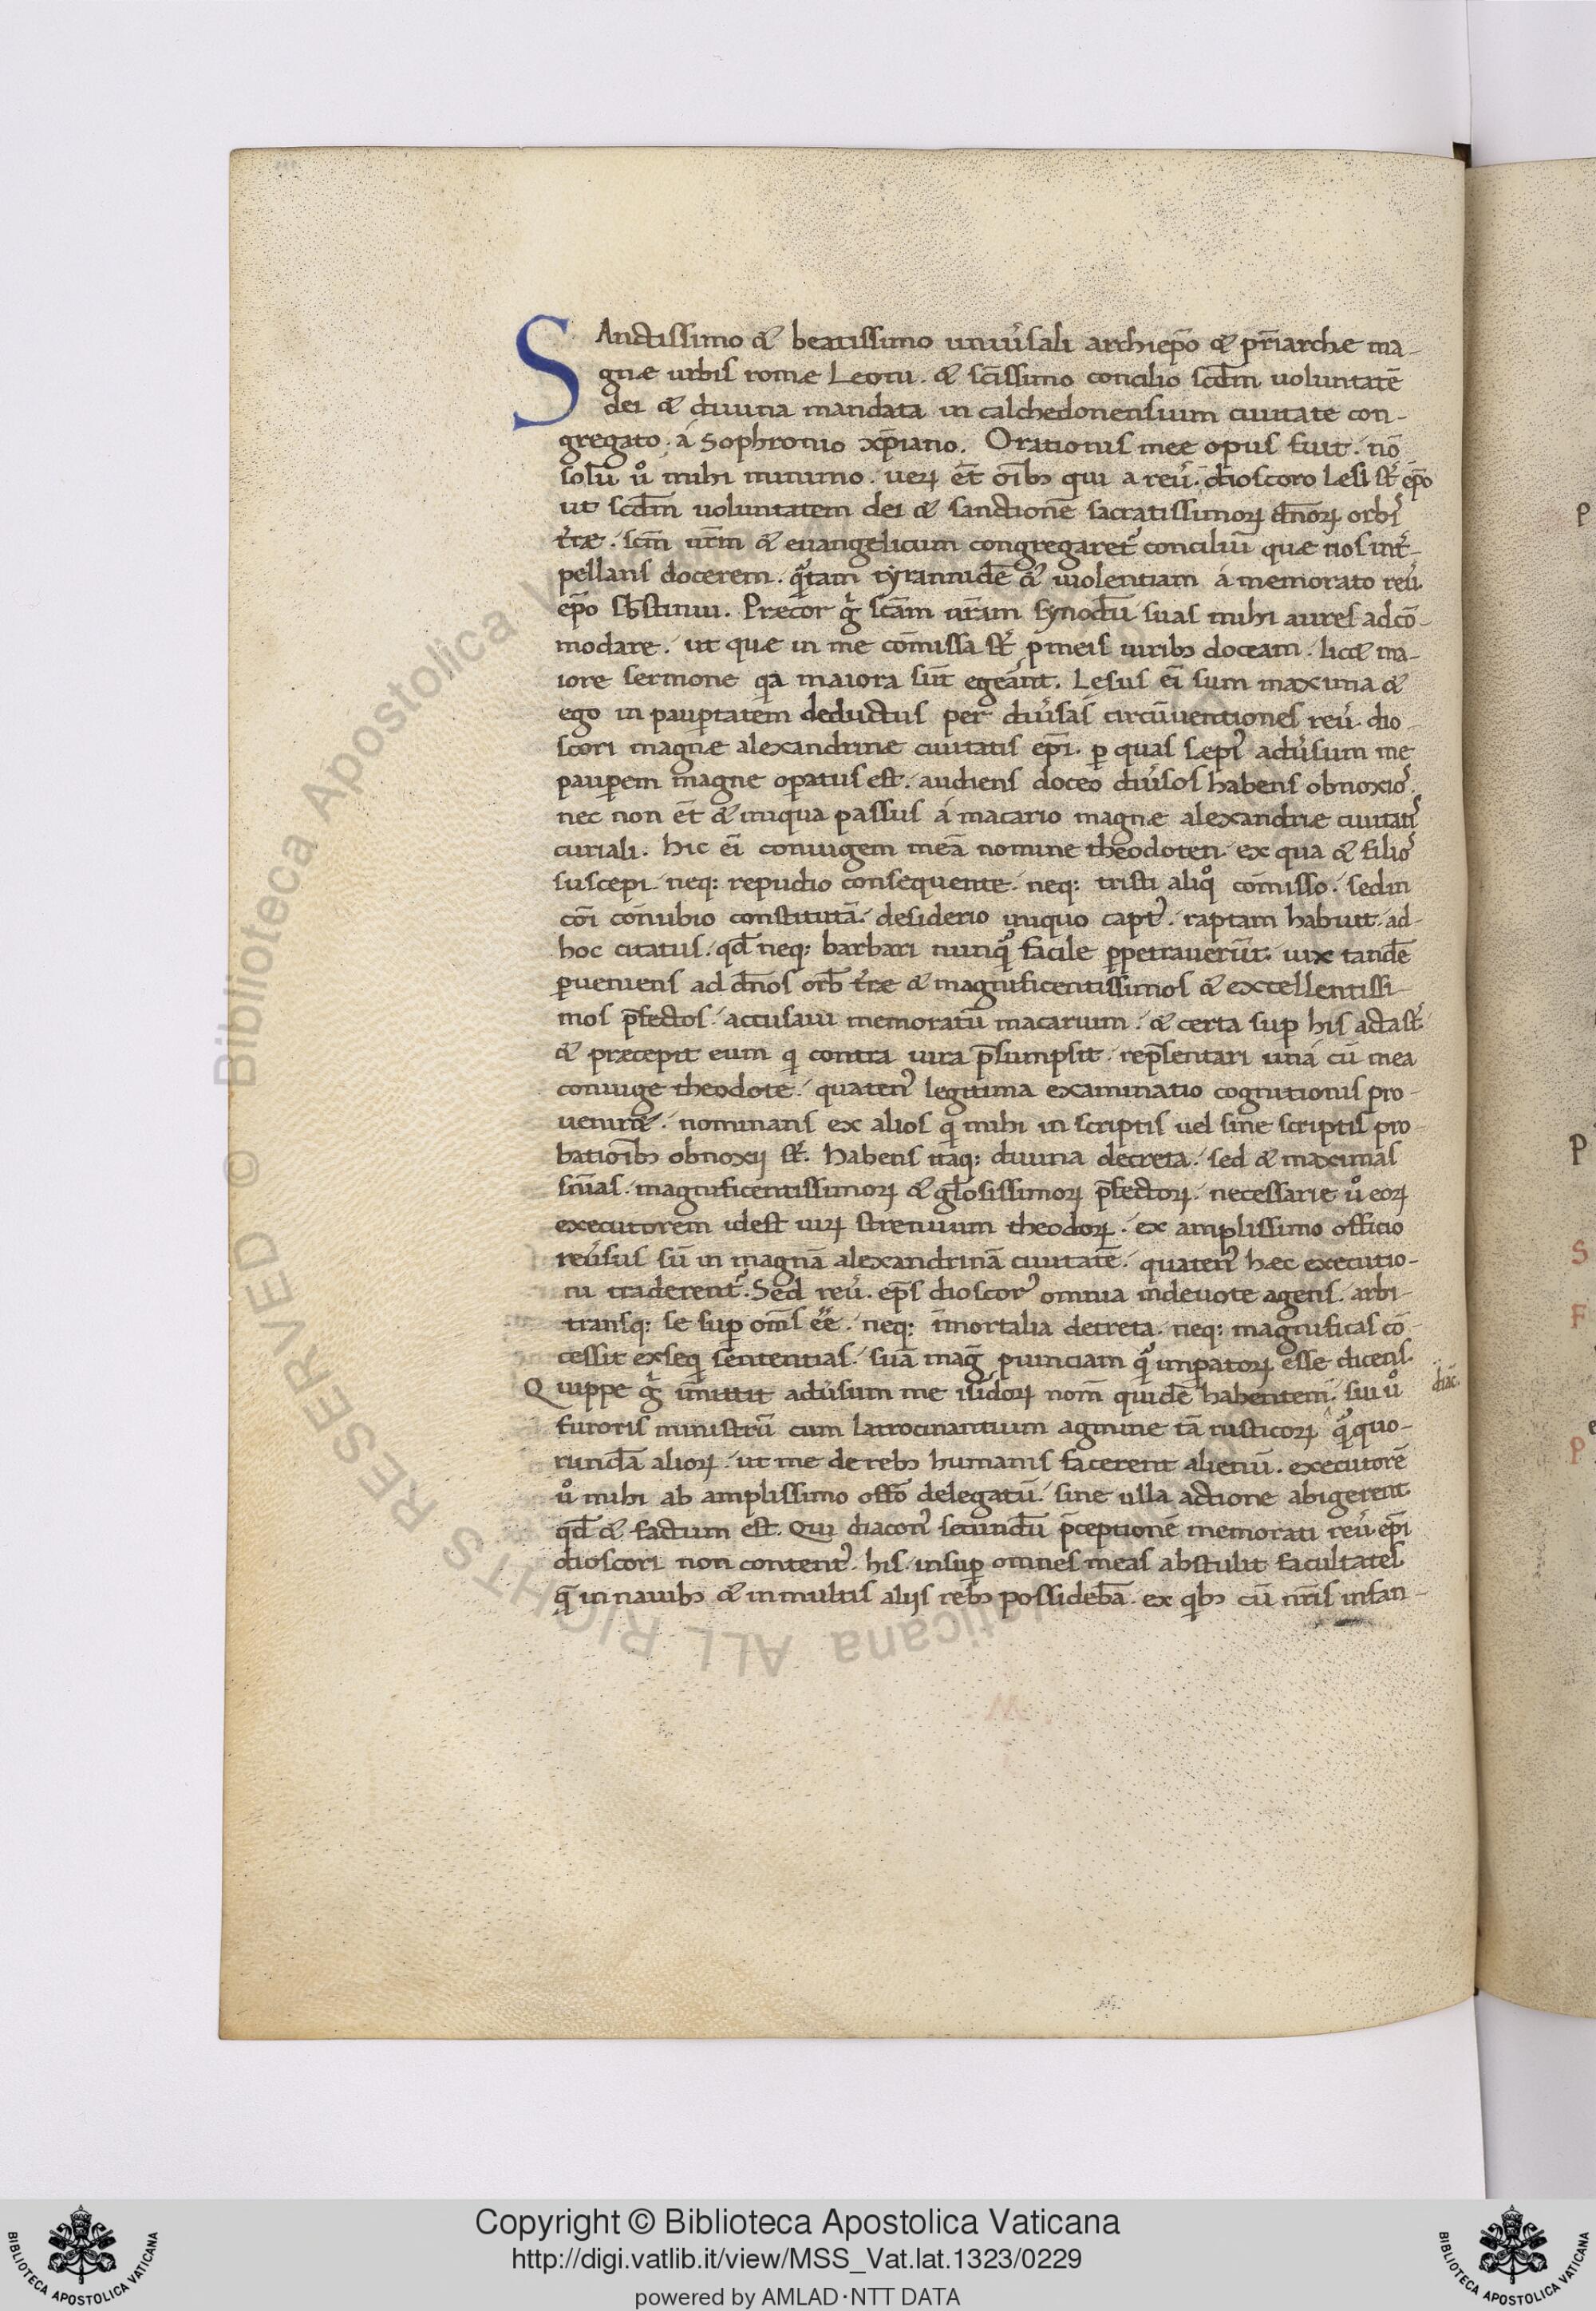 SAnctissimo & beatissimo uniu̓sali archiep̄o & pr̄iarche ma-
gnæ urbis romæ Leoni. & sc̄issimo concilio scd̄m uoluntatē
dei & diuina mandata in calchedonensium ciuitate con-
gregato. á sophronio xp̄iano. Orationis meæ opus fuit. nō
solū ů mihi minimo. ueꝝ et̄ oīb; qui a reu̓. dioscoro Lesi st̄ ep̄o
ut scd̄m uoluntatem dei & sanctionē sacratissimoꝝ dn̄oꝝ orbis
t̓ræ. sc̄m ur̄m & euangelicum congregaret᷑ conciliū quæ nos int̓-
pellans docerem. q̄tam tyrannidē & uiolentiam á memorato reu̓.
ep̄o sb̄stinui. Præcor g̊ sc̄am ur̄am synodū suas mihi aures adcō-
modare. ut quæ in me cōmissa st̄ ꝑ meis uirib; doceam. lic& ma-
iore sermone qa maiora sūt egeant. Lesus ei̅ sum maxima &
ego in pauꝑtatem deductus per diu̓sas circūuentiones reu̓. dio-
scori magnæ alexandrinæ ciuitatis ep̄i. ꝑ quas sæpi᷒ adu̓sum me
pauꝑem magne oꝑatus est. audiens doceo diu̓sos habens obnoxios.
nec non et̄ & iniqua passus á macario magnæ alexandriæ ciuitatis
curiali. hic ei̅ coniugem meā nomine theodoten. ex qua & filios
suscepi. neq: repudio consequente. neq: tristi aliq̊ cōmisso. sed in
cōi conubio constitutā. desiderio iniquo capt᷒. raptam habuit. ad
hoc citatus. qd̄ neq: barbari nunq̄ facile ꝑpetrauerūt. uix tandē
ꝑueniens ad dn̄os orb̄ t̓ræ & magnificentissimos & excellentissi-
mos p̄fectos. accusaui memoratū macarium. & certa suꝑ his acta st̄
& præcepit eum q contra iura p̄sumpsit. rep̄sentari uná cū mea
coniuge theodote. quaten᷒ legitima examinatio cognitionis pro-
uenir&. nominans ex alios q mihi in scriptis uel sine scriptis pro-
batioīb; obnoxij st̄. habens itaq: diuina decreta. sed & maximas
sn̄ias. magnificentissimoꝝ & gl̄osissimoꝝ p̄fectoꝝ. necessarie ů eoꝝ
executorem idest uiꝝ strenuum theodoꝝ. ex amplissimo officio
reu̓sus sū in magnā alexandrinā ciuitatē. quaten᷒ hæc executio-
ni traderent᷑. Sed reu̓. ep̄s dioscor᷒ omnia indeuote agens. arbi-
transq: se suꝑ om̄s ēē. neq: īmortalia decreta. neq: magnificas cō-
cessit exseq sententias. suā mag̅ ꝓuinciam q̄ imꝑatoꝝ esse dicens.
Quippe g̊ īmittit adu̓sum me isidoꝝ nom̄ quidē habentem. sui ů diac̄.
furoris ministrū cum latrocinantium agmine tā rusticoꝝ q̄ quo-
rundā alioꝝ. ut me de reb; humanis facerent alienū. executorē
ů mihi ab amplissimo offō delegatū. sine ulla actione abigerent.
qd̄ & factum est. Qui diacon᷒ secundū p̄ceptionē memorati reu̓. ep̄i
dioscori non content᷒. his. insuꝑ omnes meas abstulit facultates.
q̄ in nauib; & in multis alijs reb; possidebā. ex qb; cū nr̄is infan-
P
P
S
F
P
Copyright © Biblioteca Apostolica Vaticana
http://digi.vatlib.it/view/MSS_Vat.lat.1323/0229
powered by AMLAD·NTT DATA
BIBLIOTECA APOSTOLICA VATICANA
BIBLIOTECA APOSTOLICA VATICANA